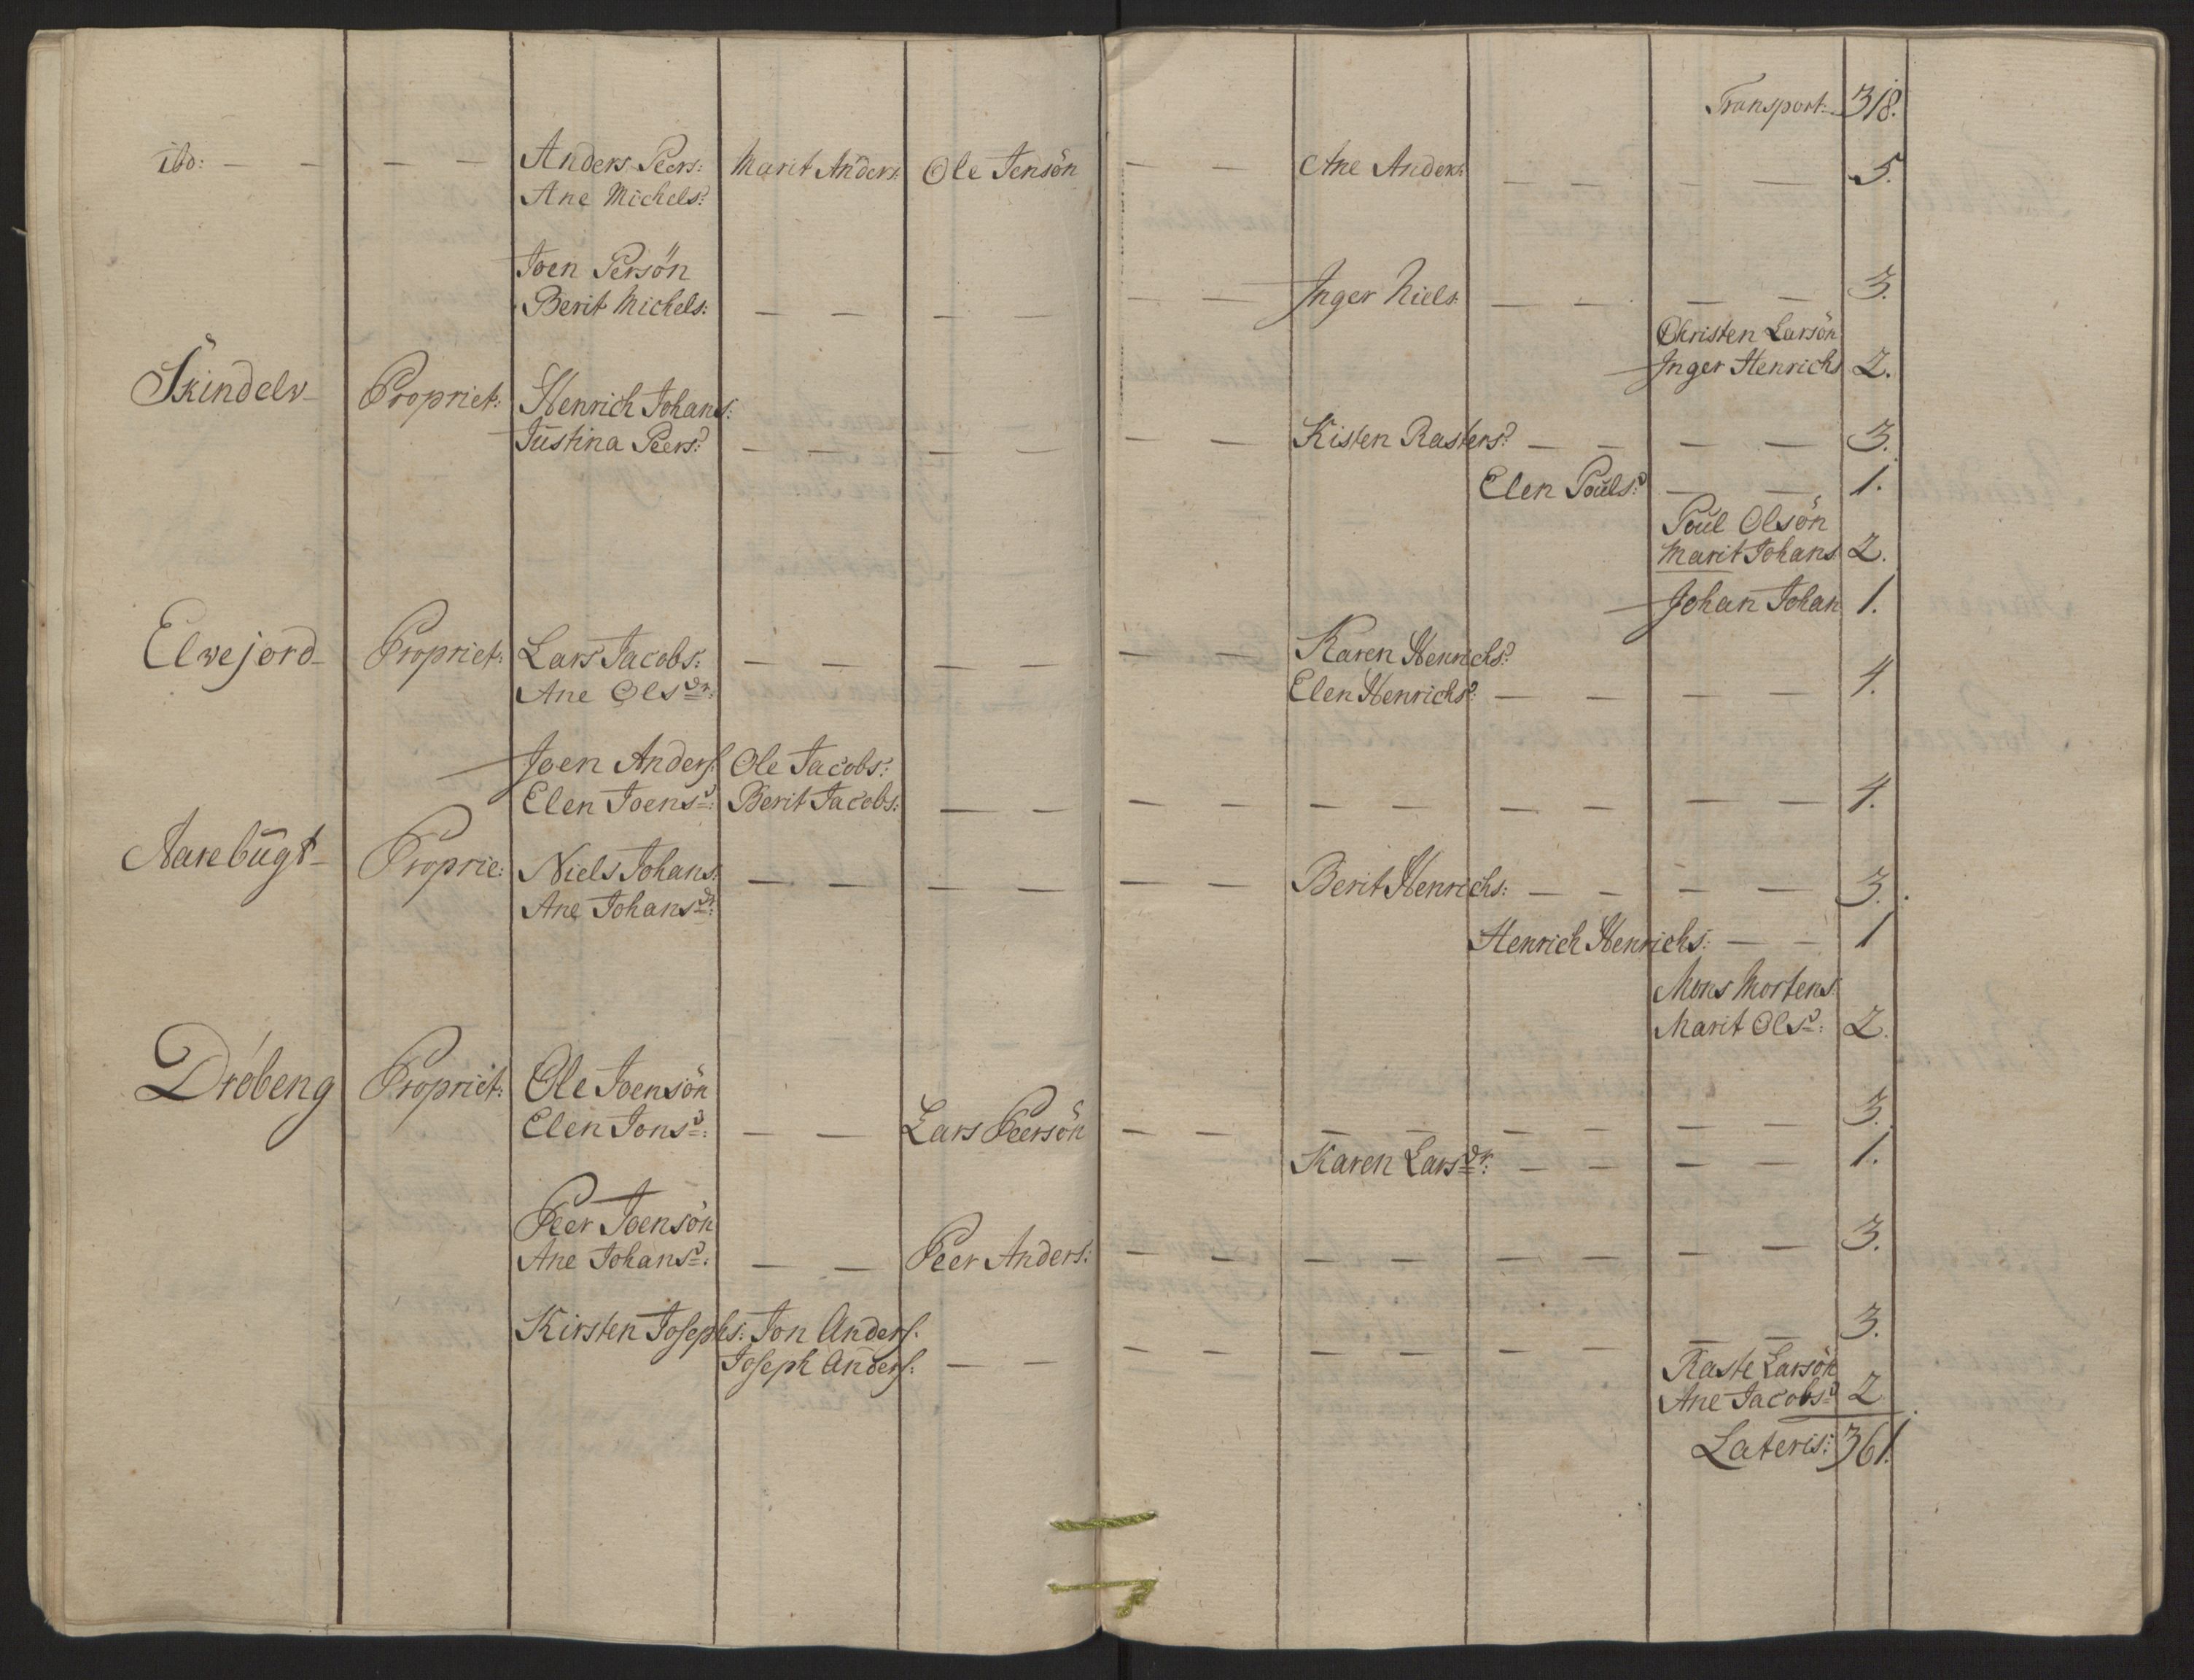 Transport: 318.
ibd: — — — — Anders Peers: Marit Anders: Ole Jensön — — Ane Anders: — — — — 5.
Ane Michelsd:
Joen Persön
Berit Michels: — — — — — — Inger Niels: — — — — 3.
Christen Larsön
Inger Henrichs 2.
Skindelv Propriet: Henrich Johans:
Justina Peersd: — — — — — — Kisten Rastersd: — — — — 3.
Elen Poulsd: — — 1.
Poul Olsön
Marit Johans 2.
Johan Johan 1.
Elvejord Propriet: Lars Jacobs: — — — — — — Karen Henrichsd:
Ane Olsdr: Elen Henrichsd: — — — — 4.
Joen Anders: Ole Jacobs:
Elen Joensd: Berit Jacobs: — — — — — — — — — — 4.
Aarebugt Proprie: Niels Johans: — — — — — — Berit Henrichs: — — — — 3.
Ane Johansdr:
Henrich Henrichs: — — 1
Mons Mortens:
Marit Olsd: 2.
Dröbeng Propriet: Ole Joensön
Elen Jonsd: — — Lars Peersön — — — — — — — — 3.
Karen Larsdr: — — — — 1.
Peer Joensön
Ane Johansd: — — Peer Anders: — — — — — — — — 3.
Kirsten Josephs: Jon Anders: 3.
Joseph Anders: — — — — — — — — — —
Raste Larsön
Ane Jacobsd 2
Lateris: 361.